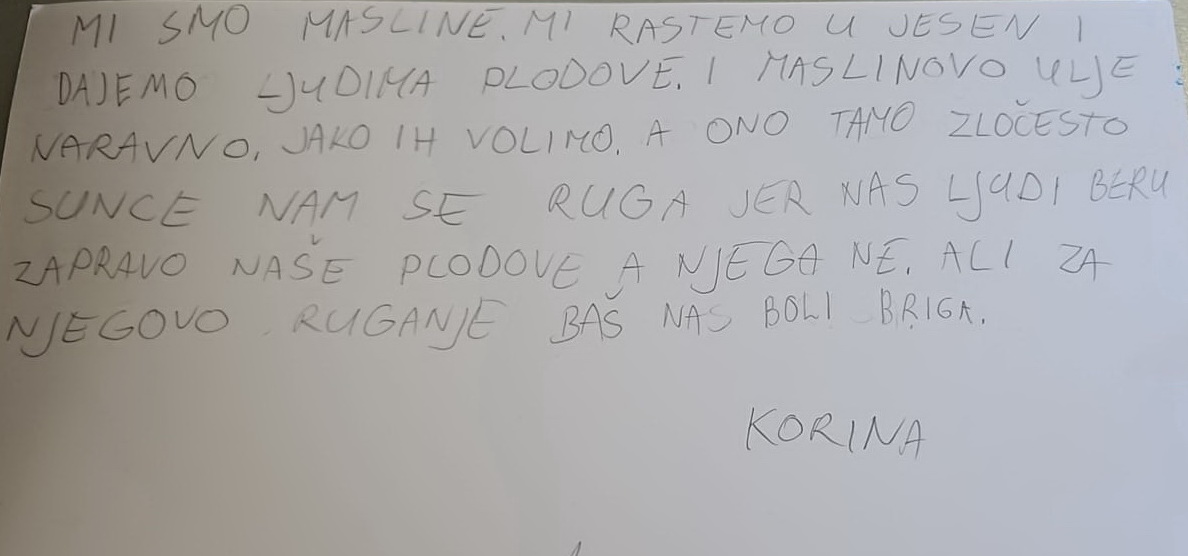 MI SMO MASLINE. MI RASTEMO U JESEN I
DAJEMO LJUDIMA PLODOVE. I MASLINOVO ULJE
NARAVNO. JAKO IH VOLIMO. A ONO TAMO ZLOČESTO
SUNCE NAM SE RUGA JER NAS LJUDI BERU
ZAPRAVO NAŠE PLODOVE A NJEGA NE. ALI ZA
NJEGOVO RUGANJE BAŠ NAS BOLI BRIGA.
KORINA